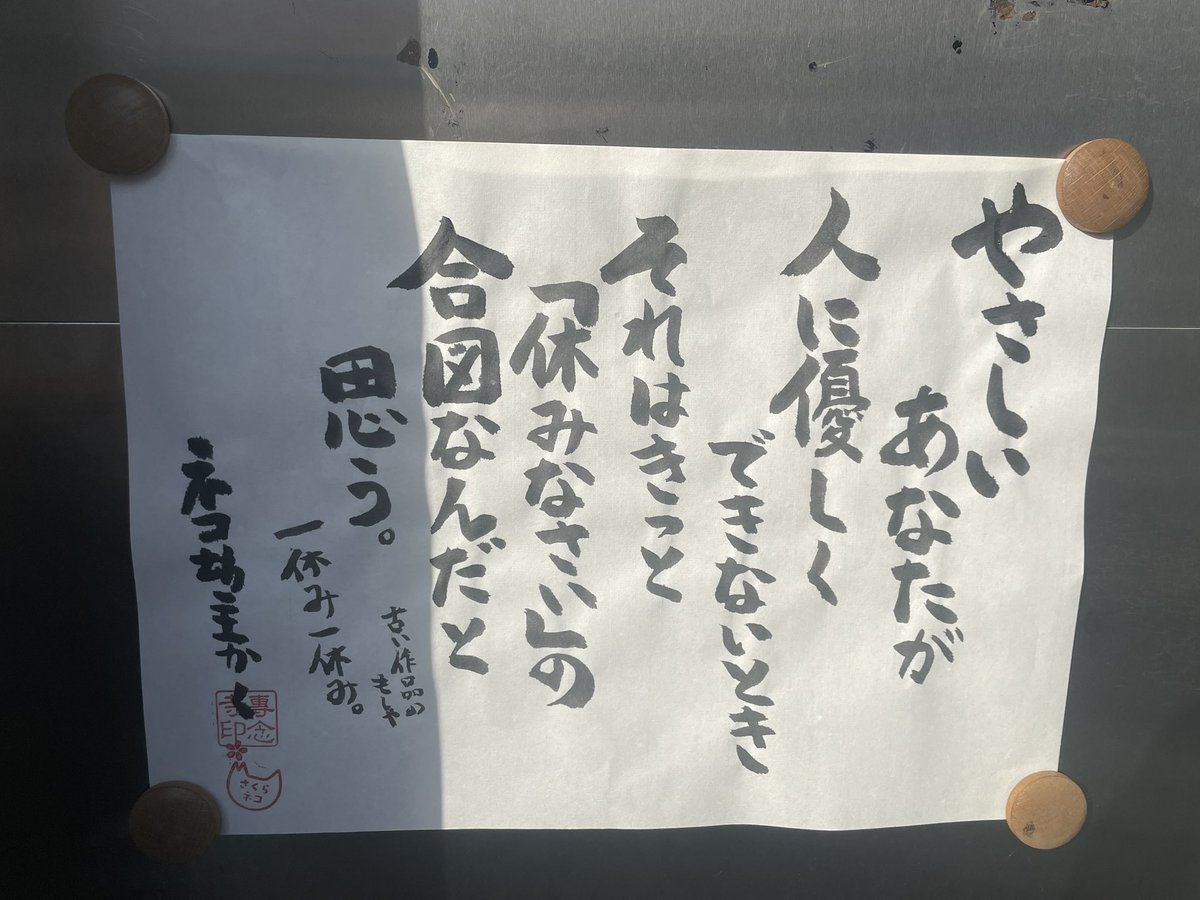 やさしい
あなたが
人に優しく
できないとき
それはきっと
「休みなさい」の
合図なんだと
思う。
古い作品の
もしゃ
一休み一休み。
ネコ坊主かく
専念
寺印
さくら
ネコ